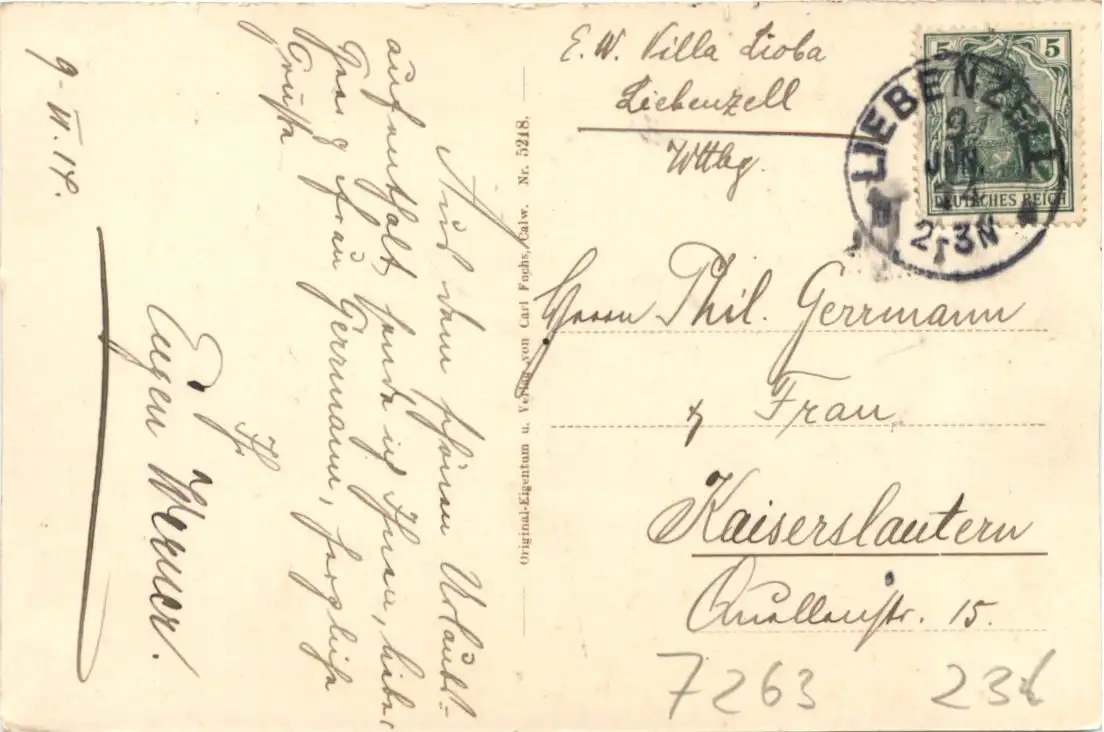 9. VI. 14.
Aus dem schönen Urlaubs-
aufenthalt, sende ich Ihnen, lieber
Herr & Frau Gerrmann, herzliche
Grüsse
Ihr
Eugen Werner.
Original-Eigentum u. Verlag von Carl Fuchs, Calw. Nr. 5218.
E. W. Villa Lioba
Liebenzell
Wttbg.
5 5
DEUTSCHES REICH
LIEBENZELL
9
JUN.
14
2-3N
Herrn Phil. Gerrmann
& Frau
Kaiserslautern
Quellenstr. 15.
7263